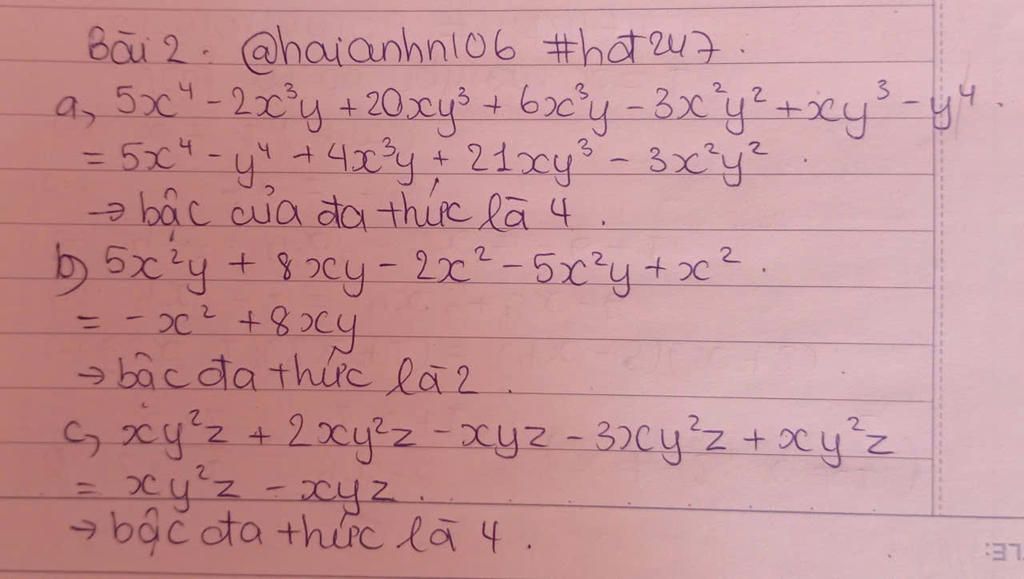 Bài 2. @haianhn106 #hdt247.
a, 5x⁴ - 2x³y + 20xy³ + 6x³y - 3x²y² + xy³ - y⁴.
= 5x⁴ - y⁴ + 4x³y + 21xy³ - 3x²y².
→ bậc của đa thức là 4.
b) 5x²y + 8xy - 2x² - 5x²y + x².
= -x² + 8xy
→ bậc đa thức là 2.
c, xy²z + 2xy²z - xyz - 3xy²z + xy²z
= xy²z - xyz.
→ bậc đa thức là 4.